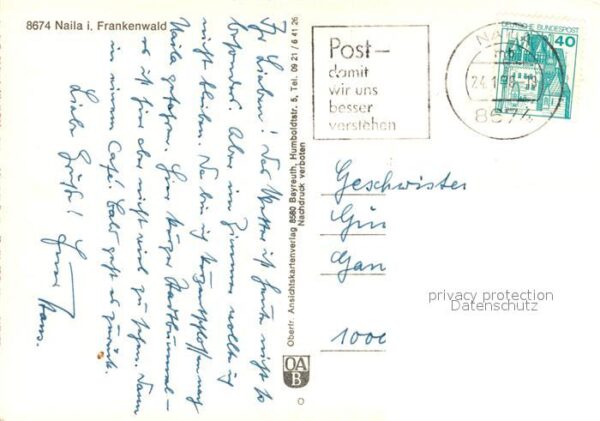 8674 Naila i. Frankenwald
Ihr Lieben! Das Wetter ist heute nicht so
besonders. Aber im Zimmer wollte ich
nicht bleiben. So bin ich kurzentschlossen nach
Naila gefahren. Ein kurzer Stadtbummel –
es ist hier aber nicht viel zu sehen. Dann
in einem Café. Bald geht es zurück.
Liebe Grüße! Euer
Hans.
Obertr. Ansichtskartenverlag 8580 Bayreuth, Humboldtstr. 5, Tel. 09 21 / 6 41 26
Nachdruck verboten
OA
B
Post –
damit
wir uns
besser
verstehen
NAILA
mb
24.1
8674
DEUTSCHE BUNDESPOST
40
Geschwister
Gün
Gan
1000
privacy protection
Datenschutz